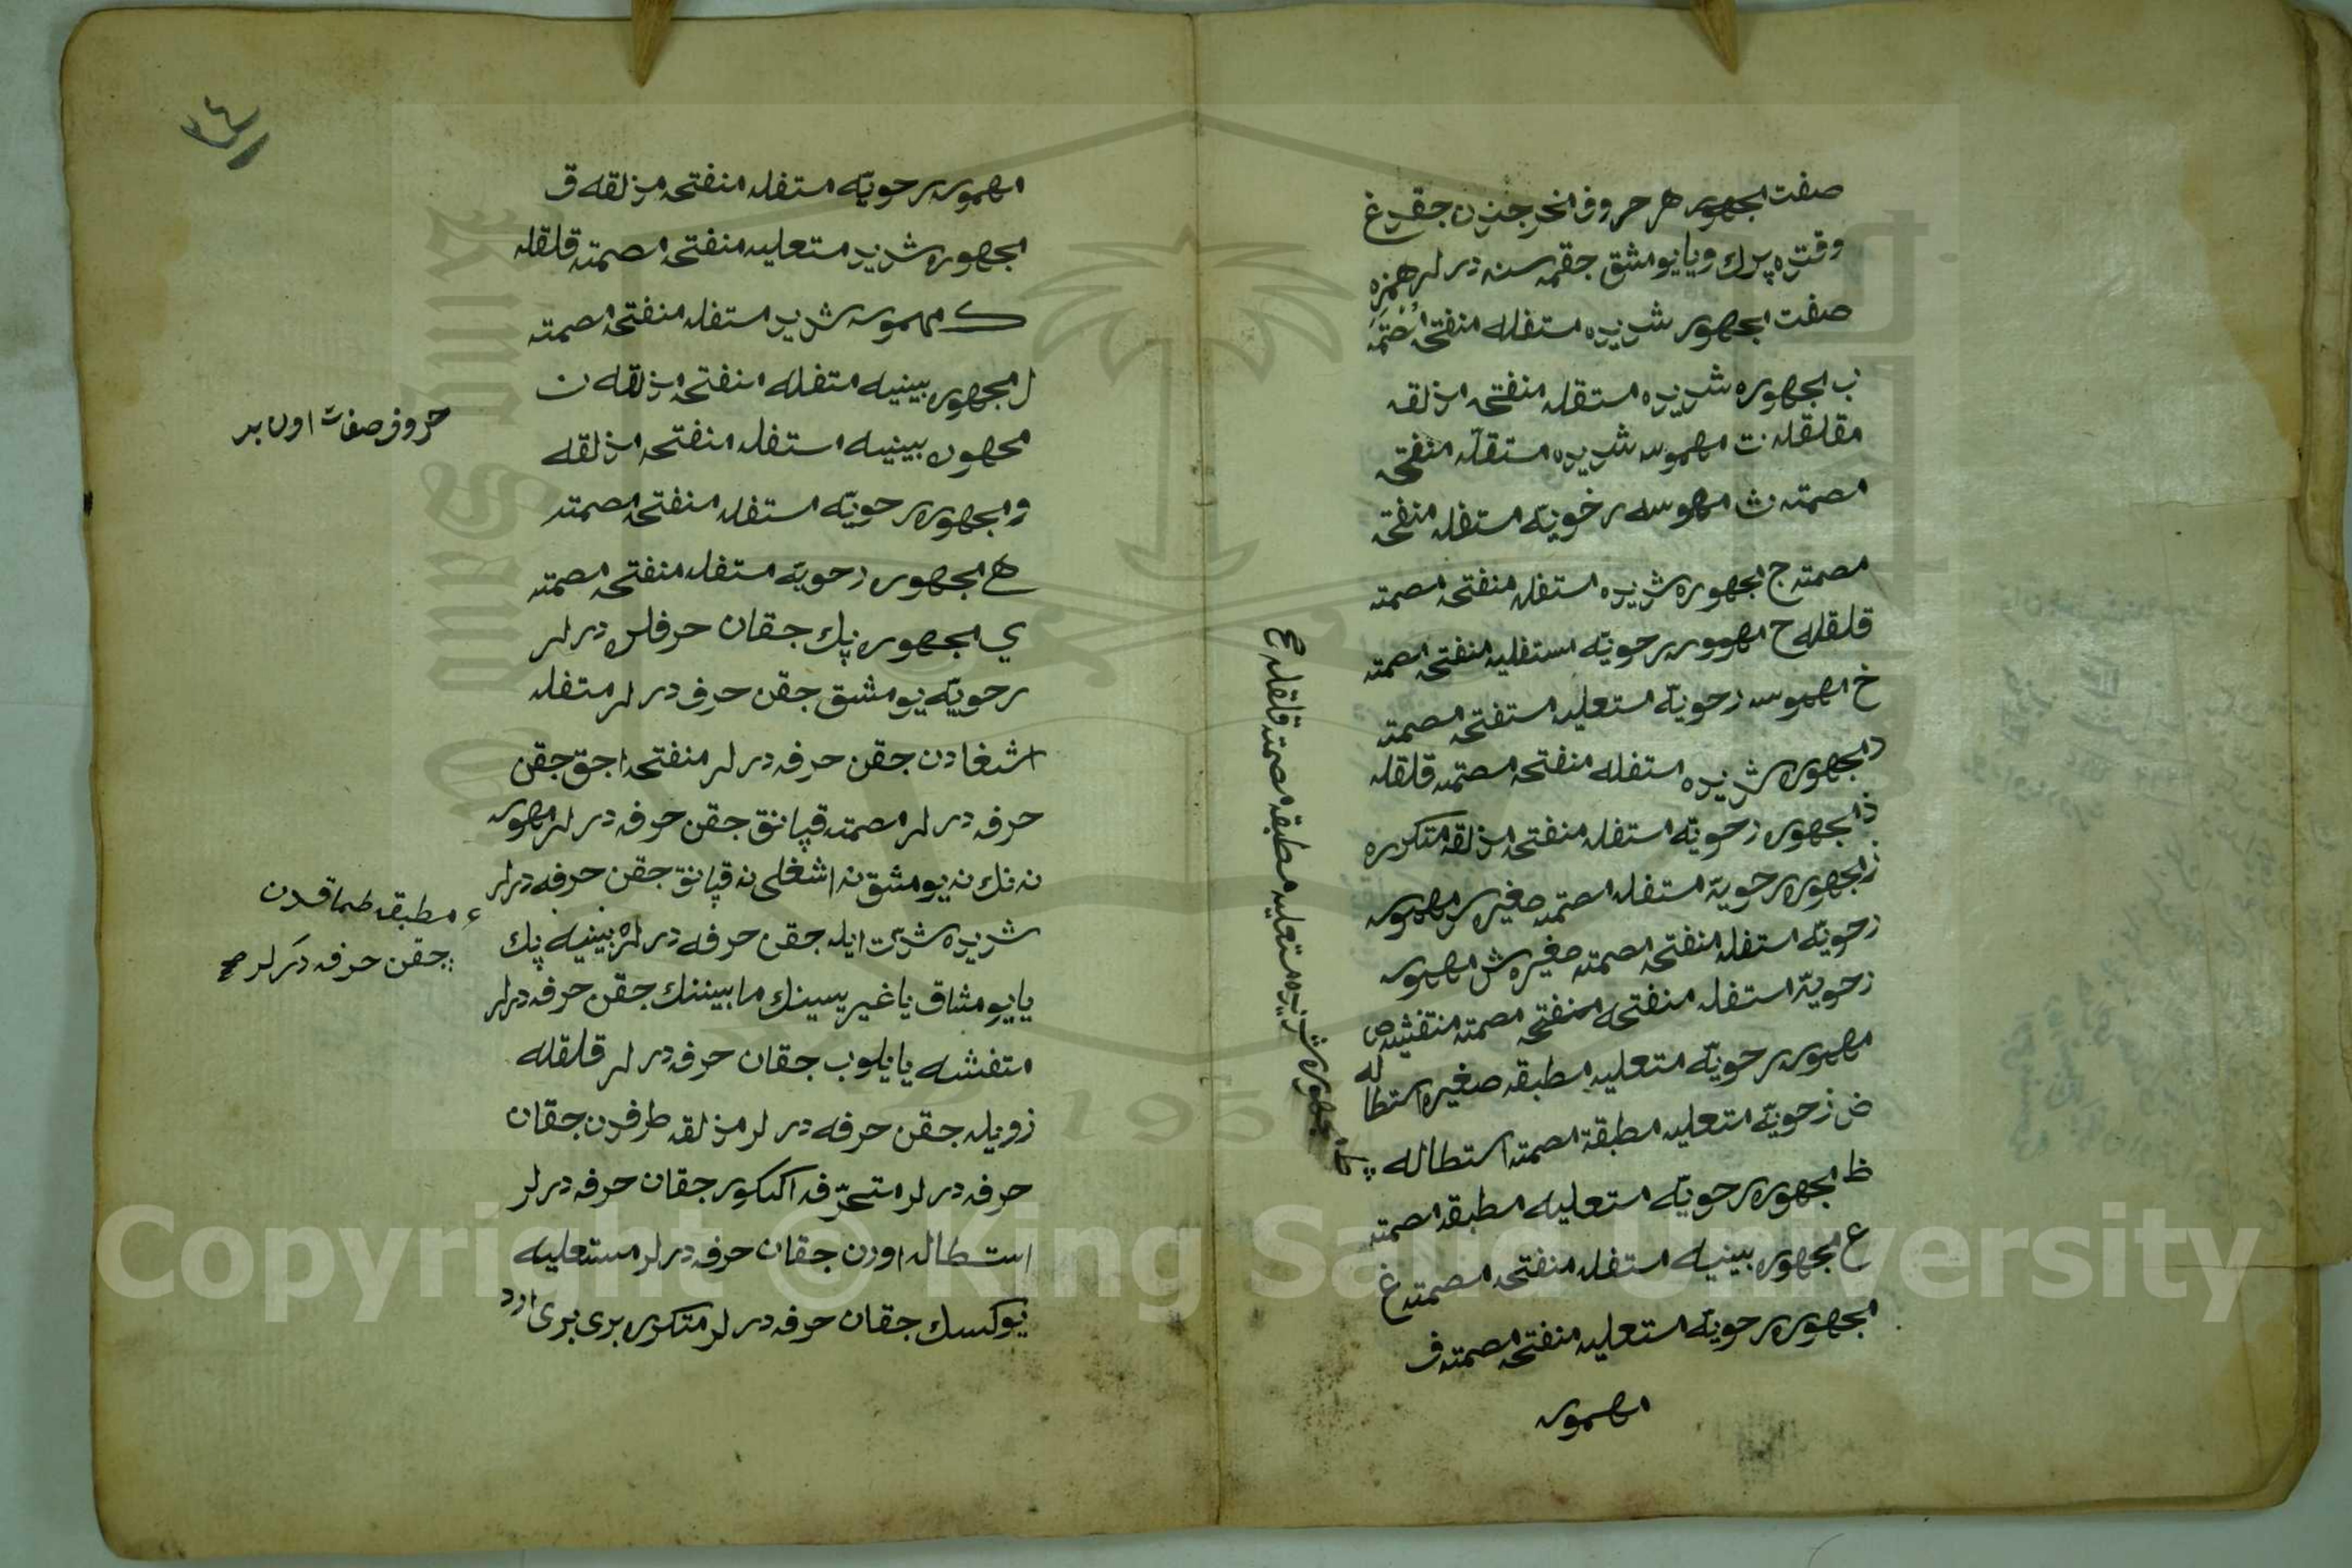 صفت مجهور هر حروف مخرجندن جقدغ
وقتده پرك ويا يومشق جقمه سنه درلر همزه
صفت مجهور شديده مستفله منفتحه
ب مجهوره شديده مستفله منفتحه مذلقه
مقلقله ت مهموسه شديده مستفله منفتحه
مصمته ث مهموسه رخويّه مستفله منفتحه
مصمته ج مجهوره شديده مستفله منفتحه مصمته
قلقله ح مهموسه رحويّه مستفليه منفتحه مصمته
خ مهموسه رحويّه مستعليه مستفتحه مصمته
د مجهوره شديده مستفله منفتحه مصتمه قلقله
ذ مجهوره رحويّه مستفله منفتحه مذلقه متكرره
ز مجهوره رحويّه مستفله مصتمه صغيره س مهموسه
رحويّه مستفله منفتحه مصمته صغيره ش مهموسه
رحويّه مستفله منفتحه منفتحه مصمته متفشيه ص
مهموسه رحويّه متعليه مطبقه صغيره استطاله
ض رحويّه متعليه مطبقة مصمته استطاله
ط مجهوره شديده متعليه مطبقه مصمته قلقله صح
ظ مجهوره رحويّه مستعليه مطبقه مصمته
ع مجهوره بينيه مستفله منفتحه مصمته غ
مجهوره رحويّه مستعليه منفتحه مصمته ف
مهموسه
٣٤
مهموسه رحويّه مستفله منفتحه مذلقه ق
مجهوره شديد متعليه منفتحه مصمته قلقله
ك مهموسه شديد مستفله منفتحه مصمته
ل مجهوره بينيه متفله منفتحه مذلقه ن
مجهوره بينيه مستفله منفتحه مذلقه
و مجهوره رحويّه مستفله منفتحه مصمته
ه مجهوره رحويّه مستفله منفتحه مصمته
ي مجهوره پك جقان حرفلره درلر
رحويّه يومشق جقن حرف درلر متفله
اشغادن جقن حرفه درلر منفتحه اجق جقن
حرفه درلر مصمته قپانق جقن حرفه درلر مهموسه
نه نك نه يومشق نه اشغلى نه قپانق جقن حرفه درلر
شديده شدّت ايله جقن حرفه درلر بينيه پك
يا يومشاق يا غيريسينك مابيننك جقن حرفه درلر
متفشه يايلوب جقان حرفه درلر قلقله
زويله جقن حرفه درلر مذلقه طرفدن جقان
حرفه درلر متحرّفه اكىكور جقان حرفه درلر
استطاله اوزن جقان حرفه درلر مستعليه
يوكسك جقان حرفه درلر متكرره برى برى ارد
حروف صفات اون بر
مطبقه طماقدن
جقن حرفه دكرلر صح